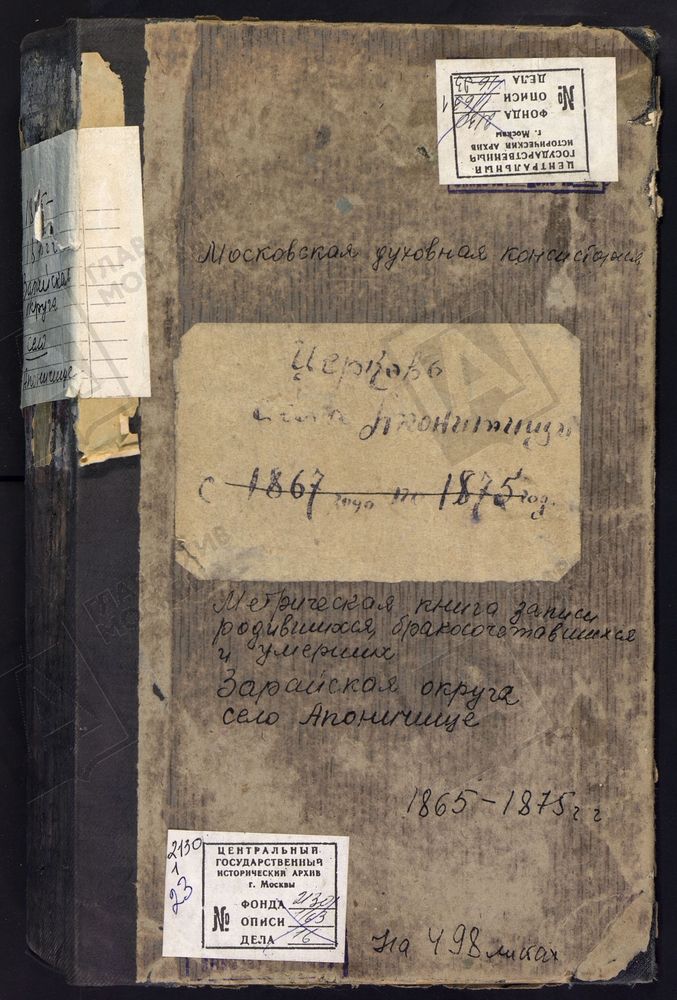 ЦЕНТРАЛЬНЫЙ
ГОСУДАРСТВЕННЫЙ
ИСТОРИЧЕСКИЙ АРХИВ
г. Москвы
№
ФОНДА
ОПИСИ
ДЕЛА
Московская духовная консистория
Зарайская
округа
село
Апоничище
Церковь
села
с 1867 года по 1875 год.
Метрическая книга записи
родившихся, бракосочетавшихся
и умерших
Зарайская округа
село Апоничище
1865-1875 г г
2130
1
23
ЦЕНТРАЛЬНЫЙ
ГОСУДАРСТВЕННЫЙ
ИСТОРИЧЕСКИЙ АРХИВ
г. Москвы
№
ФОНДА
ОПИСИ 163
ДЕЛА 16
На 498 листах